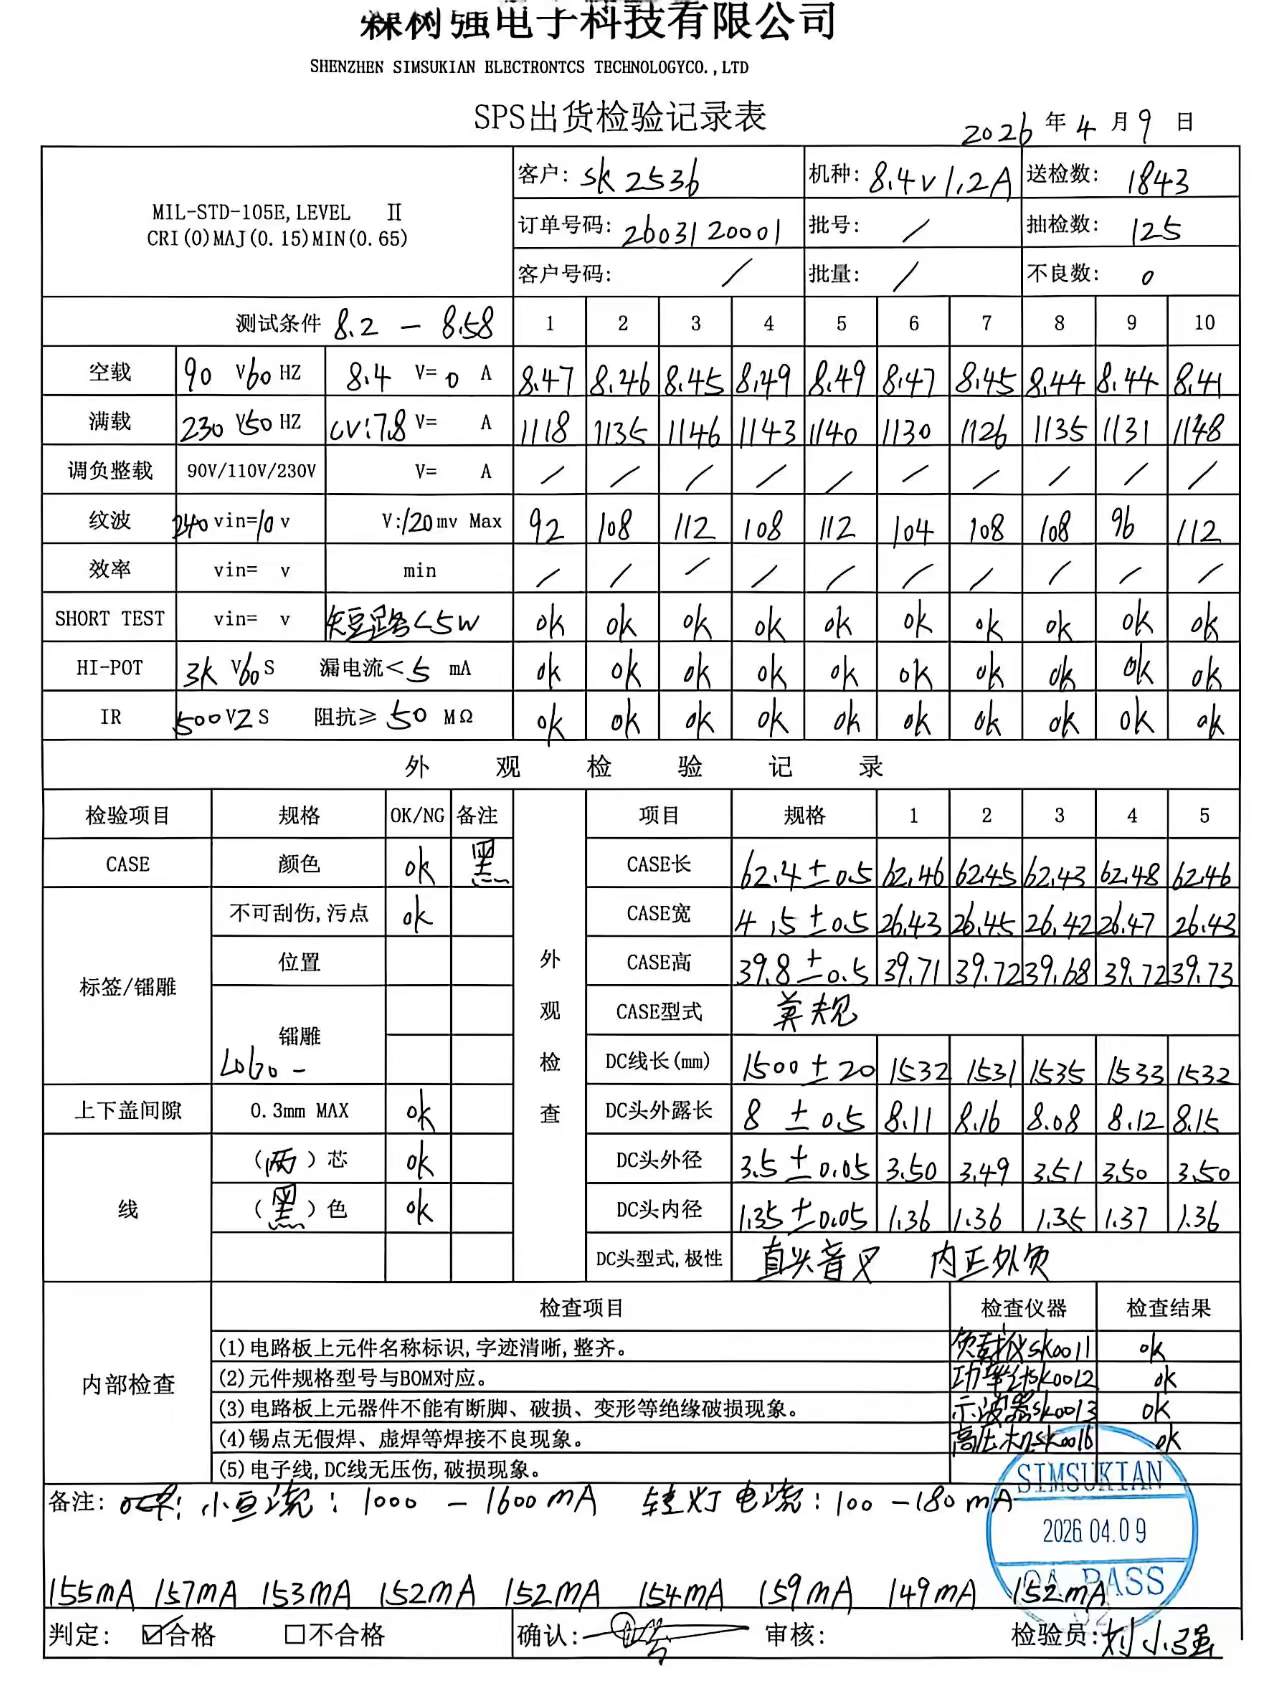 霖树强电子科技有限公司
SHENZHEN SIMSUKIAN ELECTRONTCS TECHNOLOGYCO.,LTD
SPS出货检验记录表
2026 年 4 月 9 日
MIL-STD-105E,LEVEL Ⅱ
CRI(0)MAJ(0.15)MIN(0.65)
客户: SK2536 机种: 8.4V1.2A 送检数: 1843
订单号码: 2603120001 批号: / 抽检数: 125
客户号码: / 批量: / 不良数: 0
测试条件 8.2 - 8.58 1 2 3 4 5 6 7 8 9 10
空载 90 V60 HZ 8.4 V= 0 A 8.47 8.46 8.45 8.49 8.49 8.47 8.45 8.44 8.44 8.41
满载 230 V50 HZ CV:7.8 V= A 1118 1135 1146 1143 1140 1130 1126 1135 1131 1148
调负整载 90V/110V/230V V= A / / / / / / / / / /
纹波 240 vin=10 v V:120 mv Max 92 108 112 108 112 104 108 108 96 112
效率 vin= v min / / / / / / / / / /
SHORT TEST vin= v 短路<5W ok ok ok ok ok ok ok ok ok ok
HI-POT 3K V60 S 漏电流< 5 mA ok ok ok ok ok ok ok ok ok ok
IR 500 V2 S 阻抗≥ 50 MΩ ok ok ok ok ok ok ok ok ok ok
外观检验记录
检验项目 规格 OK/NG 备注 外观检查 项目 规格 1 2 3 4 5
CASE 颜色 ok 黑 CASE长 62.4±0.5 62.46 62.45 62.43 62.48 62.46
标签/镭雕 不可刮伤,污点 ok CASE宽 4.5±0.5 26.43 26.45 26.42 26.47 26.43
位置 CASE高 39.8±0.5 39.71 39.72 39.68 39.72 39.73
镭雕 CASE型式 美规
LOGO - DC线长(mm) 1500±20 1532 1531 1535 1533 1532
上下盖间隙 0.3mm MAX ok DC头外露长 8 ±0.5 8.11 8.16 8.08 8.12 8.15
线 (两)芯 ok DC头外径 3.5±0.05 3.50 3.49 3.51 3.50 3.50
(黑)色 ok DC头内径 1.35±0.05 1.36 1.36 1.35 1.37 1.36
DC头型式,极性 直头音叉 内正外负
内部检查 检查项目 检查仪器 检查结果
(1)电路板上元件名称标识,字迹清晰,整齐。 负载仪SK0011 ok
(2)元件规格型号与BOM对应。 功率计SK0012 ok
(3)电路板上元器件不能有断脚、破损、变形等绝缘破损现象。 示波器SK0013 ok
(4)锡点无假焊、虚焊等焊接不良现象。 高压机SK0016 ok
(5)电子线,DC线无压伤,破损现象。
SIMSUKIAN
2026.04.09
QA PASS
02
备注: 小豆流: 1000 - 1600 mA 转灯电流: 100 - 180 mA
155mA 157mA 153mA 152mA 152mA 154mA 159mA 149mA 152mA
判定: ☑合格 □不合格 确认: 审核: 检验员: 刘小强